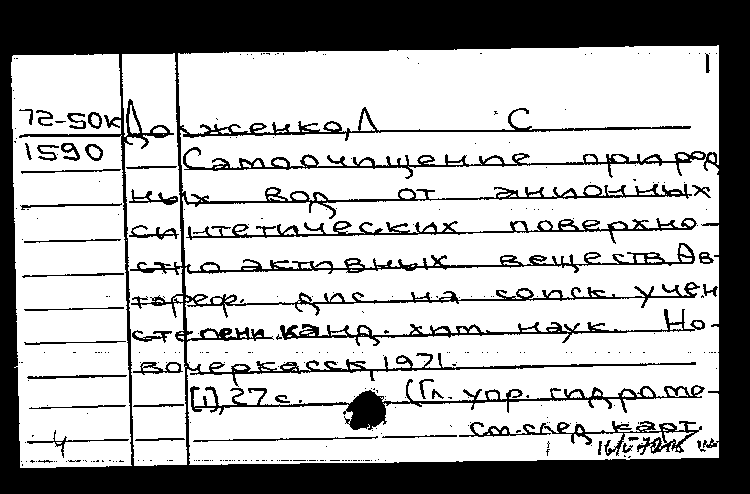 1
72-50к Долженко, Л С
1590 Самоочищение природ
ных вод от анионных
синтетических поверхно-
стно активных веществ. Ав-
тореф. дис. на соиск. учен
степени канд. хим. наук. Но-
вочеркасск, 1971.
[1], 27 с. (Гл. упр. гидроме-
4 см. след. карт.